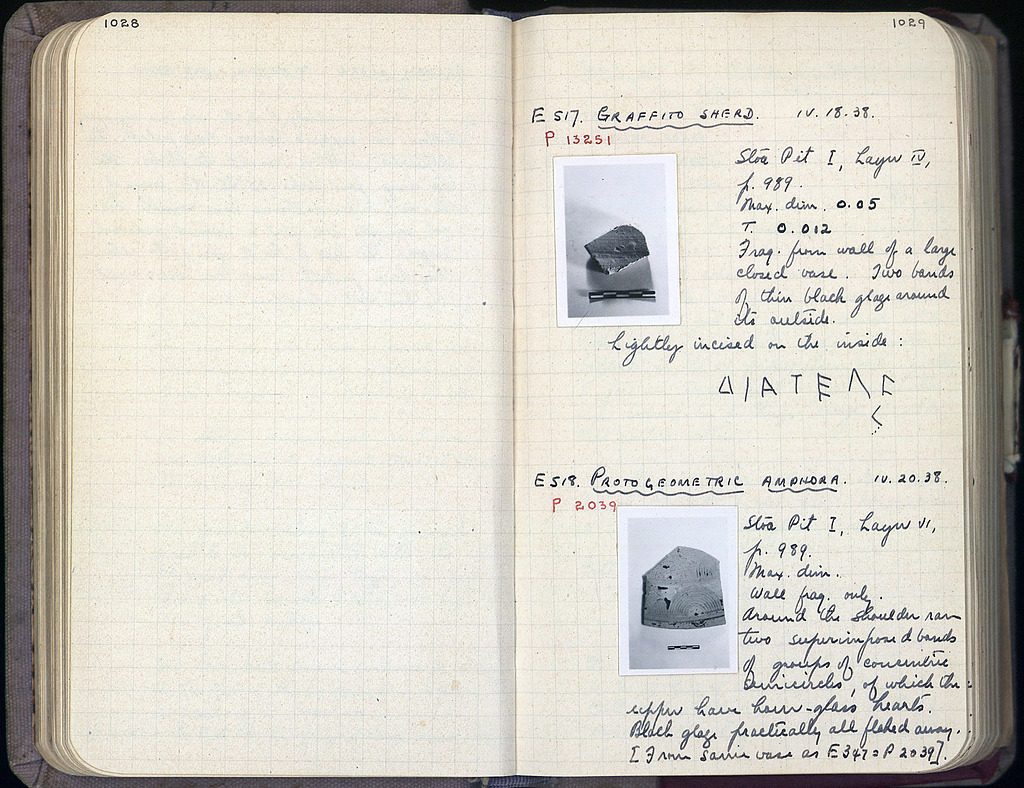 1028
1029
E 517. GRAFFITO SHERD. IV. 18. 38.
P 13251
Stoa Pit I, Layer IV,
p. 989.
Max. dim. 0.05
T. 0.012
Frag. from wall of a large
closed vase. Two bands
of thin black glaze around
its outside.
Lightly incised on the inside :
Δ I A T E Λ
E 518. PROTOGEOMETRIC AMPHORA. IV. 20. 38.
P 2039
Stoa Pit I, Layer VI,
p. 989.
Max. dim.
Wall frag. only.
Around the shoulder ran
two superimposed bands
of groups of concentric
semicircles, of which the
upper have hour-glass hearts.
Black glaze practically all flaked away.
[From same vase as E 347 = P 2039].